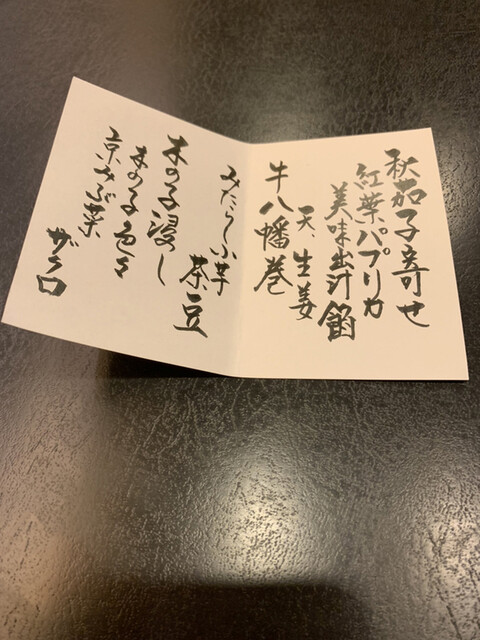 秋茄子寄せ
紅葉パプリカ
美味出汁餡
天、生姜
牛八幡巻
みたらし小芋
茶豆
木の子浸し
木の子色々
京みぶ菜
ザクロ